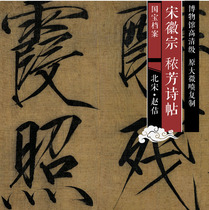 博物馆高清级 原大微喷复制
宋徽宗 秾芳诗帖
国宝档案
北宋·赵佶
醉残
霞照